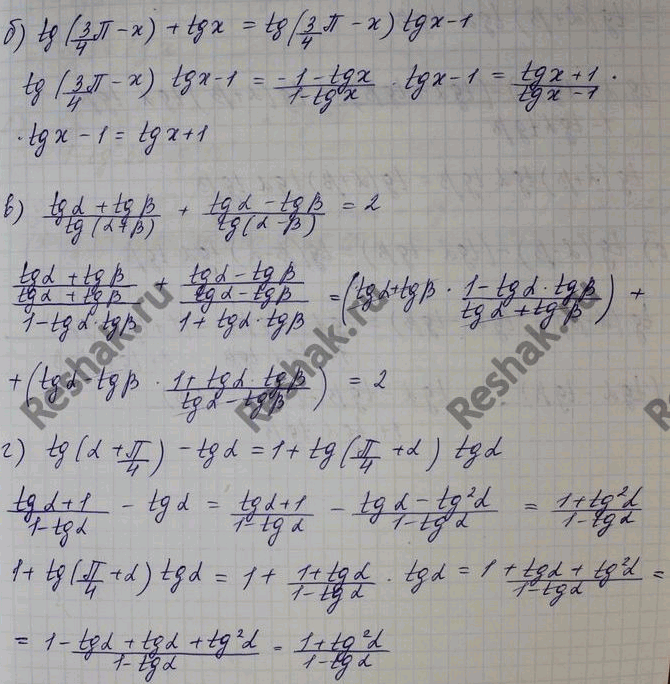 б) tg(3/4 π - x) + tgx = tg(3/4 π - x) tgx - 1
tg(3/4 π - x) tgx - 1 = (-1 - tgx)/(1 - tgx) · tgx - 1 = (tgx + 1)/(tgx - 1) ·
· tgx - 1 = tgx + 1
в) (tgα + tgβ)/(tg(α + β)) + (tgα - tgβ)/(tg(α - β)) = 2
(tgα + tgβ)/((tgα + tgβ)/(1 - tgα · tgβ)) + (tgα - tgβ)/((tgα - tgβ)/(1 + tgα · tgβ)) = (tgα + tgβ · (1 - tgα · tgβ)/(tgα + tgβ)) +
+ (tgα - tgβ · (1 + tgα · tgβ)/(tgα - tgβ)) = 2
г) tg(α + π/4) - tgα = 1 + tg(π/4 + α) tgα
(tgα + 1)/(1 - tgα) - tgα = (tgα + 1)/(1 - tgα) - (tgα - tg²α)/(1 - tgα) = (1 + tg²α)/(1 - tgα)
1 + tg(π/4 + α) tgα = 1 + (1 + tgα)/(1 - tgα) · tgα = 1 + (tgα + tg²α)/(1 - tgα) =
= (1 - tgα + tgα + tg²α)/(1 - tgα) = (1 + tg²α)/(1 - tgα)
Reshak.ru
Reshak.ru
Reshak.ru